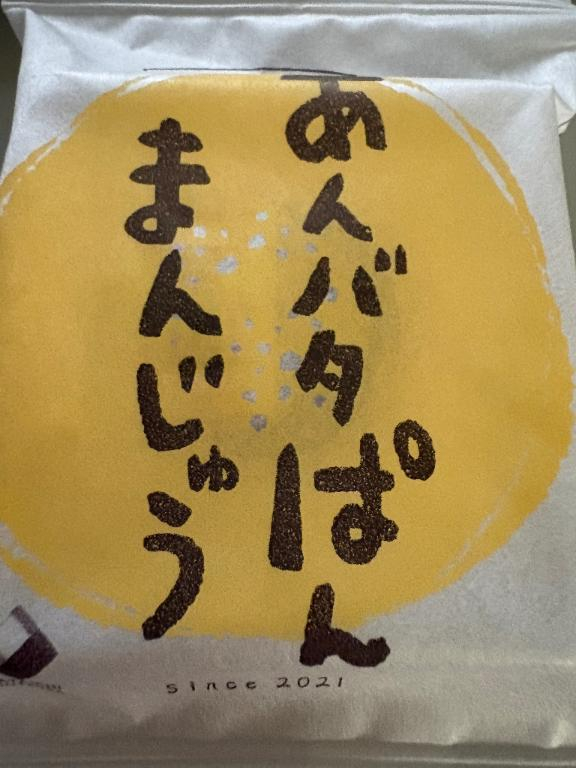 あんバタぱん
まんじゅう
since 2021